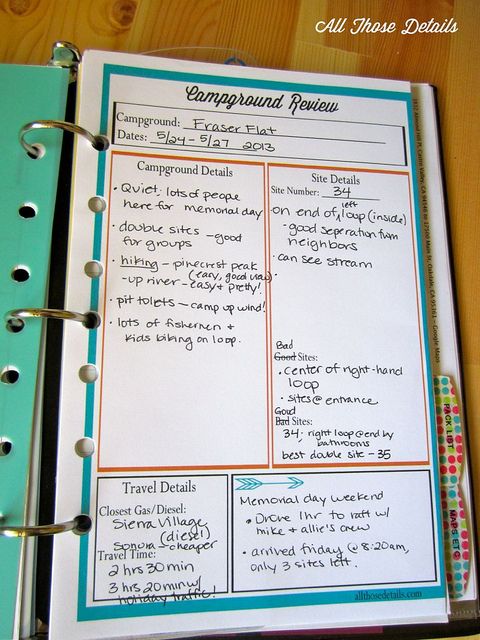 All Those Details
Campground Review
Campground: Fraser Flat
Dates: 5/24 - 5/27 2013
Campground Details
• Quiet. lots of people
here for memorial day
• double sites - good
for groups
• hiking - pinecrest peak
(easy, good view)
- up river - easy + pretty!
• pit toilets - camp up wind!
• lots of fishermen +
kids biking on loop.
Site Details
Site Number: 34
left
• on end of loop (inside)
- good seperation from
neighbors
• can see stream
•
Bad
Good Sites:
• center of right-hand
loop
• sites @ entrance
Good
Bad Sites:
34, right loop @ end by
bathrooms
best double site - 35
Travel Details
Closest Gas/Diesel:
Sierra Village
(diesel)
Sonora - cheaper
Travel Time:
2 hrs 30 min
3 hrs 20 min w/
holiday traffic!
Memorial day weekend
• Drove 1hr to raft w/
mike + allie's crew
• arrived friday @ 8:20am,
only 3 sites left.
allthosedetails.com
PACK LIST
MAPS ETC